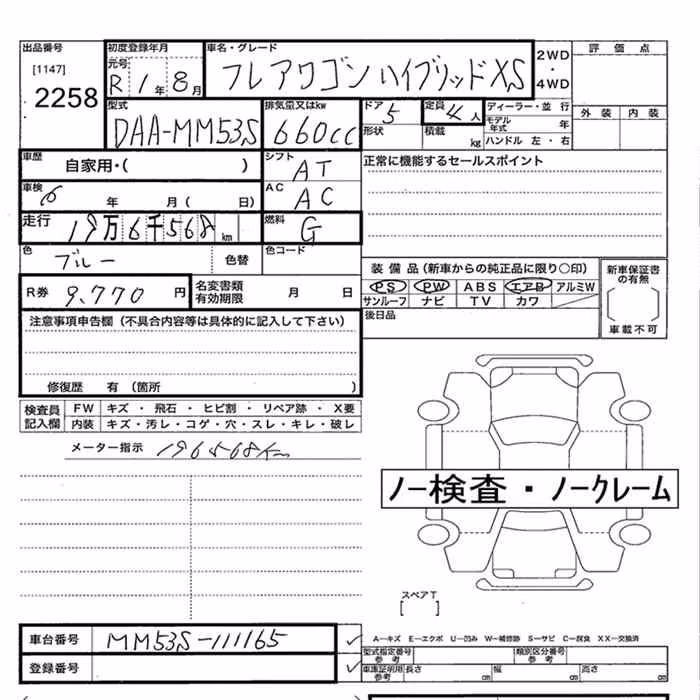 出品番号 初度登録年月 車名・グレード
[1147] 元号 R 1年 8月 フレアワゴン ハイブリッドXS 2WD・4WD 評価点
2258 型式 排気量又はkw ドア 5 定員 4人 ディーラー・並行 外装 内装
DAA-MM53S 660cc 形状 積載 kg モデル年式 年
ハンドル 左・右
車歴 自家用・( ) シフト AT 正常に機能するセールスポイント
車検 6年 月( 日) AC AC
走行 19万6千568km 燃料 G
色 ブルー 色替 色コード
装備品(新車からの純正品に限り○印) 新車保証書の有無
R券 9,770円 名変書類有効期限 月 日 PS PW ABS エアB アルミW
サンルーフ ナビ TV カワ
注意事項申告欄(不具合内容等は具体的に記入して下さい) 後日品 車載不可
修復歴 有(箇所 )
検査員記入欄 FW キズ・飛石・ヒビ割・リペア跡・X要
内装 キズ・汚レ・コゲ・穴・スレ・キレ・破レ
メーター指示 196568Km
ノー検査・ノークレーム
スペアT
[ ]
車台番号 MM53S-111165 A-キズ E-エクボ U-凹み W-補修跡 S-サビ C-腐食 XX-交換済
型式指定番号参考 類別区分番号参考
登録番号 車庫証明用参考 長さ cm 幅 cm 高さ cm